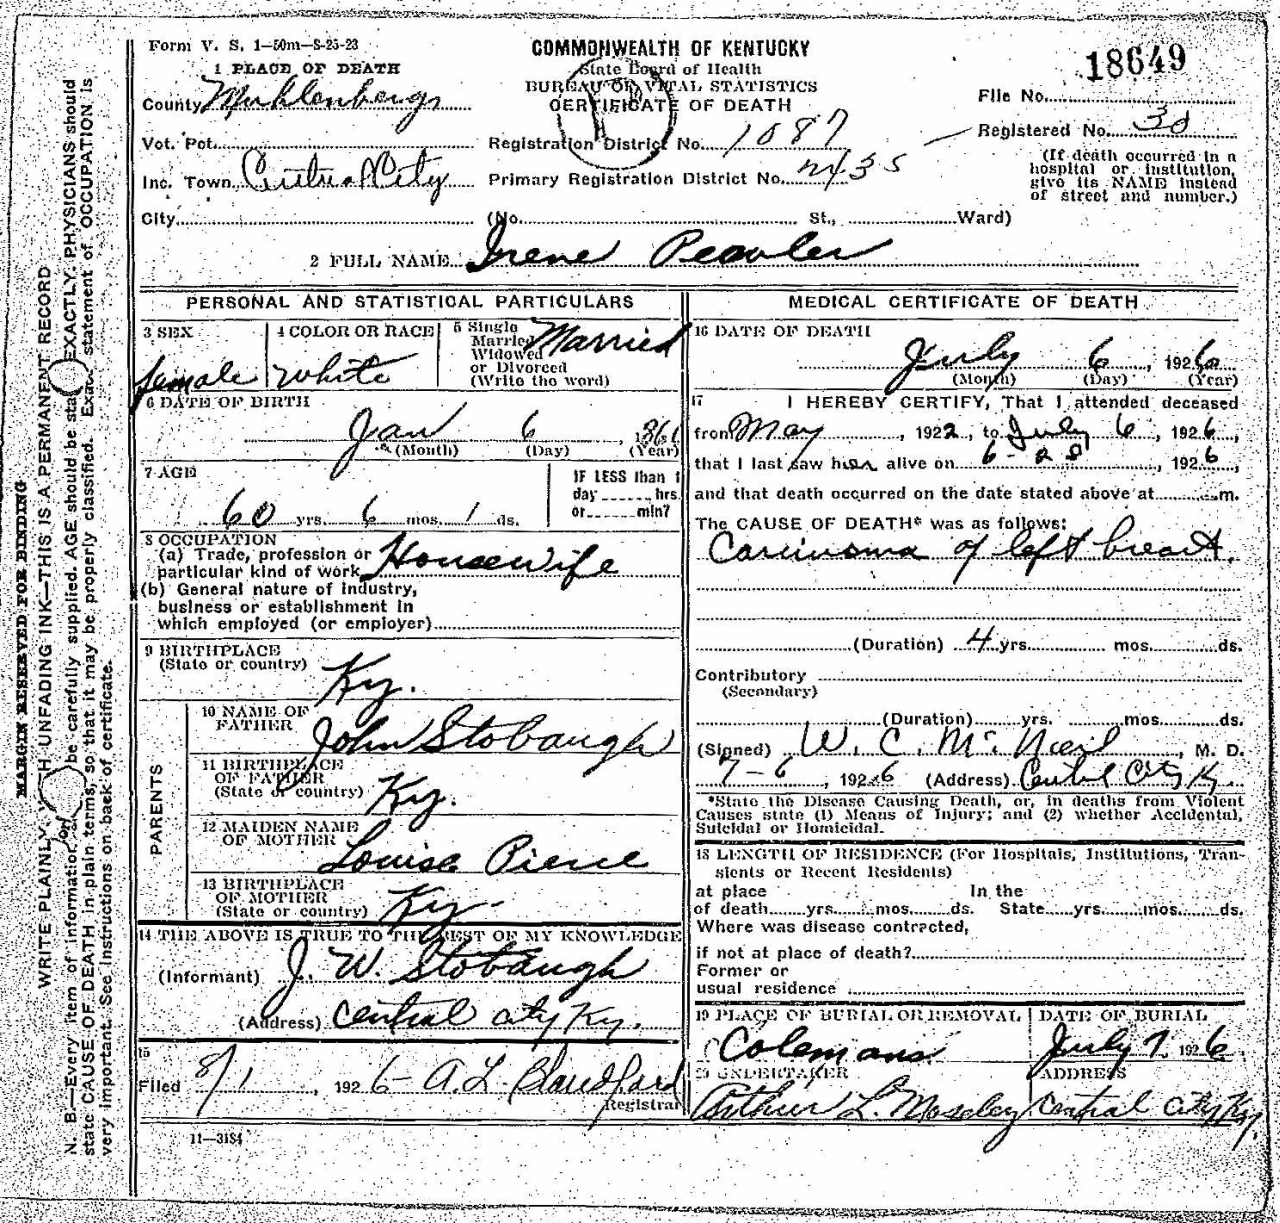 Form V. S. 1—50m—8-25-23
COMMONWEALTH OF KENTUCKY
State Board of Health
BUREAU OF VITAL STATISTICS
CERTIFICATE OF DEATH
18649
1 PLACE OF DEATH
County Muhlenberg
File No.
Vot. Pct.
Registration District No. 1087
Registered No. 30
Inc. Town Central City
Primary Registration District No. 2435
(If death occurred in a
hospital or institution,
give its NAME instead
of street and number.)
City (No. St., Ward)
2 FULL NAME Irene Peavler
PERSONAL AND STATISTICAL PARTICULARS
3 SEX
female
4 COLOR OR RACE
White
5 Single
Married
Widowed
or Divorced
(Write the word)
Married
6 DATE OF BIRTH
Jan 6, 1866
(Month) (Day) (Year)
7 AGE
60 yrs. 6 mos. 1 ds.
IF LESS than 1
day hrs.
or min?
8 OCCUPATION
(a) Trade, profession or
particular kind of work Housewife
(b) General nature of industry,
business or establishment in
which employed (or employer)
9 BIRTHPLACE
(State or country) Ky.
PARENTS
10 NAME OF
FATHER John Stobaugh
11 BIRTHPLACE
OF FATHER
(State or country) Ky.
12 MAIDEN NAME
OF MOTHER Louise Pierce
13 BIRTHPLACE
OF MOTHER
(State or country) Ky.
14 THE ABOVE IS TRUE TO THE BEST OF MY KNOWLEDGE
(Informant) J. W. Stobaugh
(Address) Central City Ky.
15
Filed 8/1, 1926 A. L. Blandford
Registrar
11—3184
MEDICAL CERTIFICATE OF DEATH
16 DATE OF DEATH
July 6, 1926
(Month) (Day) (Year)
17 I HEREBY CERTIFY, That I attended deceased
from May, 1922, to July 6, 1926,
that I last saw her alive on 6-28, 1926,
and that death occurred on the date stated above at m.
The CAUSE OF DEATH* was as follows:
Carcinoma of left breast.
(Duration) 4 yrs. mos. ds.
Contributory
(Secondary)
(Duration) yrs. mos. ds.
(Signed) W. C. McNeil, M. D.
7-6, 1926 (Address) Central City Ky.
*State the Disease Causing Death, or, in deaths from Violent
Causes state (1) Means of Injury; and (2) whether Accidental,
Suicidal or Homicidal.
18 LENGTH OF RESIDENCE (For Hospitals, Institutions, Tran-
sients or Recent Residents)
at place In the
of death yrs. mos. ds. State yrs. mos. ds.
Where was disease contracted,
if not at place of death?
Former or
usual residence
19 PLACE OF BURIAL OR REMOVAL
Colemans
DATE OF BURIAL
July 7, 1926
20 UNDERTAKER
Arthur L. Moseley
ADDRESS
Central City Ky.
MARGIN RESERVED FOR BINDING
WRITE PLAINLY, WITH UNFADING INK—THIS IS A PERMANENT RECORD
N. B.—Every item of information be carefully supplied. AGE should be stated EXACTLY. PHYSICIANS should
state CAUSE OF DEATH in plain terms, so that it may be properly classified. Exact statement of OCCUPATION is
very important. See instructions on back of certificate.